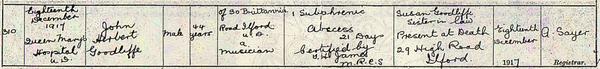 310
Eighteenth
December
1917
Queen Mary's
Hospital
U.D.
John
Herbert
Goodliffe
Male
44
years
of 30 Brittannia
Road Ilford
U.D.
a
Musician
1 Subphrenic
Abscess
21 Days
Certified by
James
M.R.C.S
Susan Goodliffe
Sister in law
Present at Death
29 High Road
Ilford
Eighteenth
December
1917
A. Sayer
Registrar.